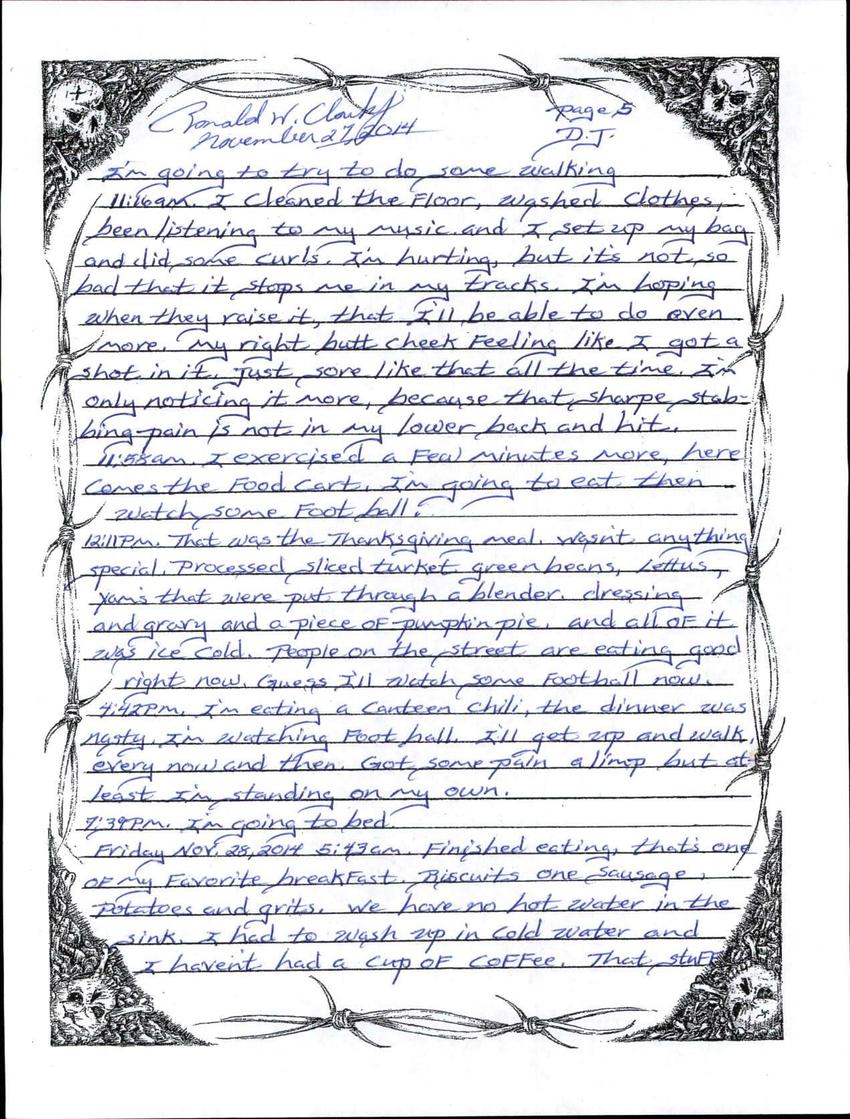 Ronald W. Clark Jr
page 5
November 27, 2014
D.J.
I'm going to try to do some walking
11:16am. I cleaned the floor, washed clothes,
been listening to my music. and I set up my bag
and did some curls. I'm hurting, but it's not so
bad that it stops me in my tracks. I'm hoping
when they raise it, that I'll be able to do even
more. My right butt cheek feeling like I got a
shot in it. Just sore like that all the time. I'm
only noticing it more, because that sharpe stab-
bing pain is not in my lower back and hit.
11:58am. I exercised a few minutes more, here
comes the food cart. I'm going to eat then
watch some foot ball.
12:11pm. That was the Thanksgiving meal. Wasn't anything
special. Processed sliced turket greenbeans, lettus,
yams that were put through a blender. dressing
and gravy and a piece of pumpkin pie. and all of it
was ice cold. People on the street are eating good
right now. Guess I'll watch some football now.
4:42pm. I'm eating a canteen chili, the dinner was
nasty. I'm watching foot ball. I'll get up and walk,
every now and then. Got some pain a limp but at
least I'm standing on my own.
7:39pm. I'm going to bed.
Friday Nov. 28, 2014 5:43am. Finished eating, that's one
of my favorite breakfast. Biscuits one sausage,
potatoes and grits. We have no hot water in the
sink. I had to wash up in cold water and
I haven't had a cup of coffee. That stuff